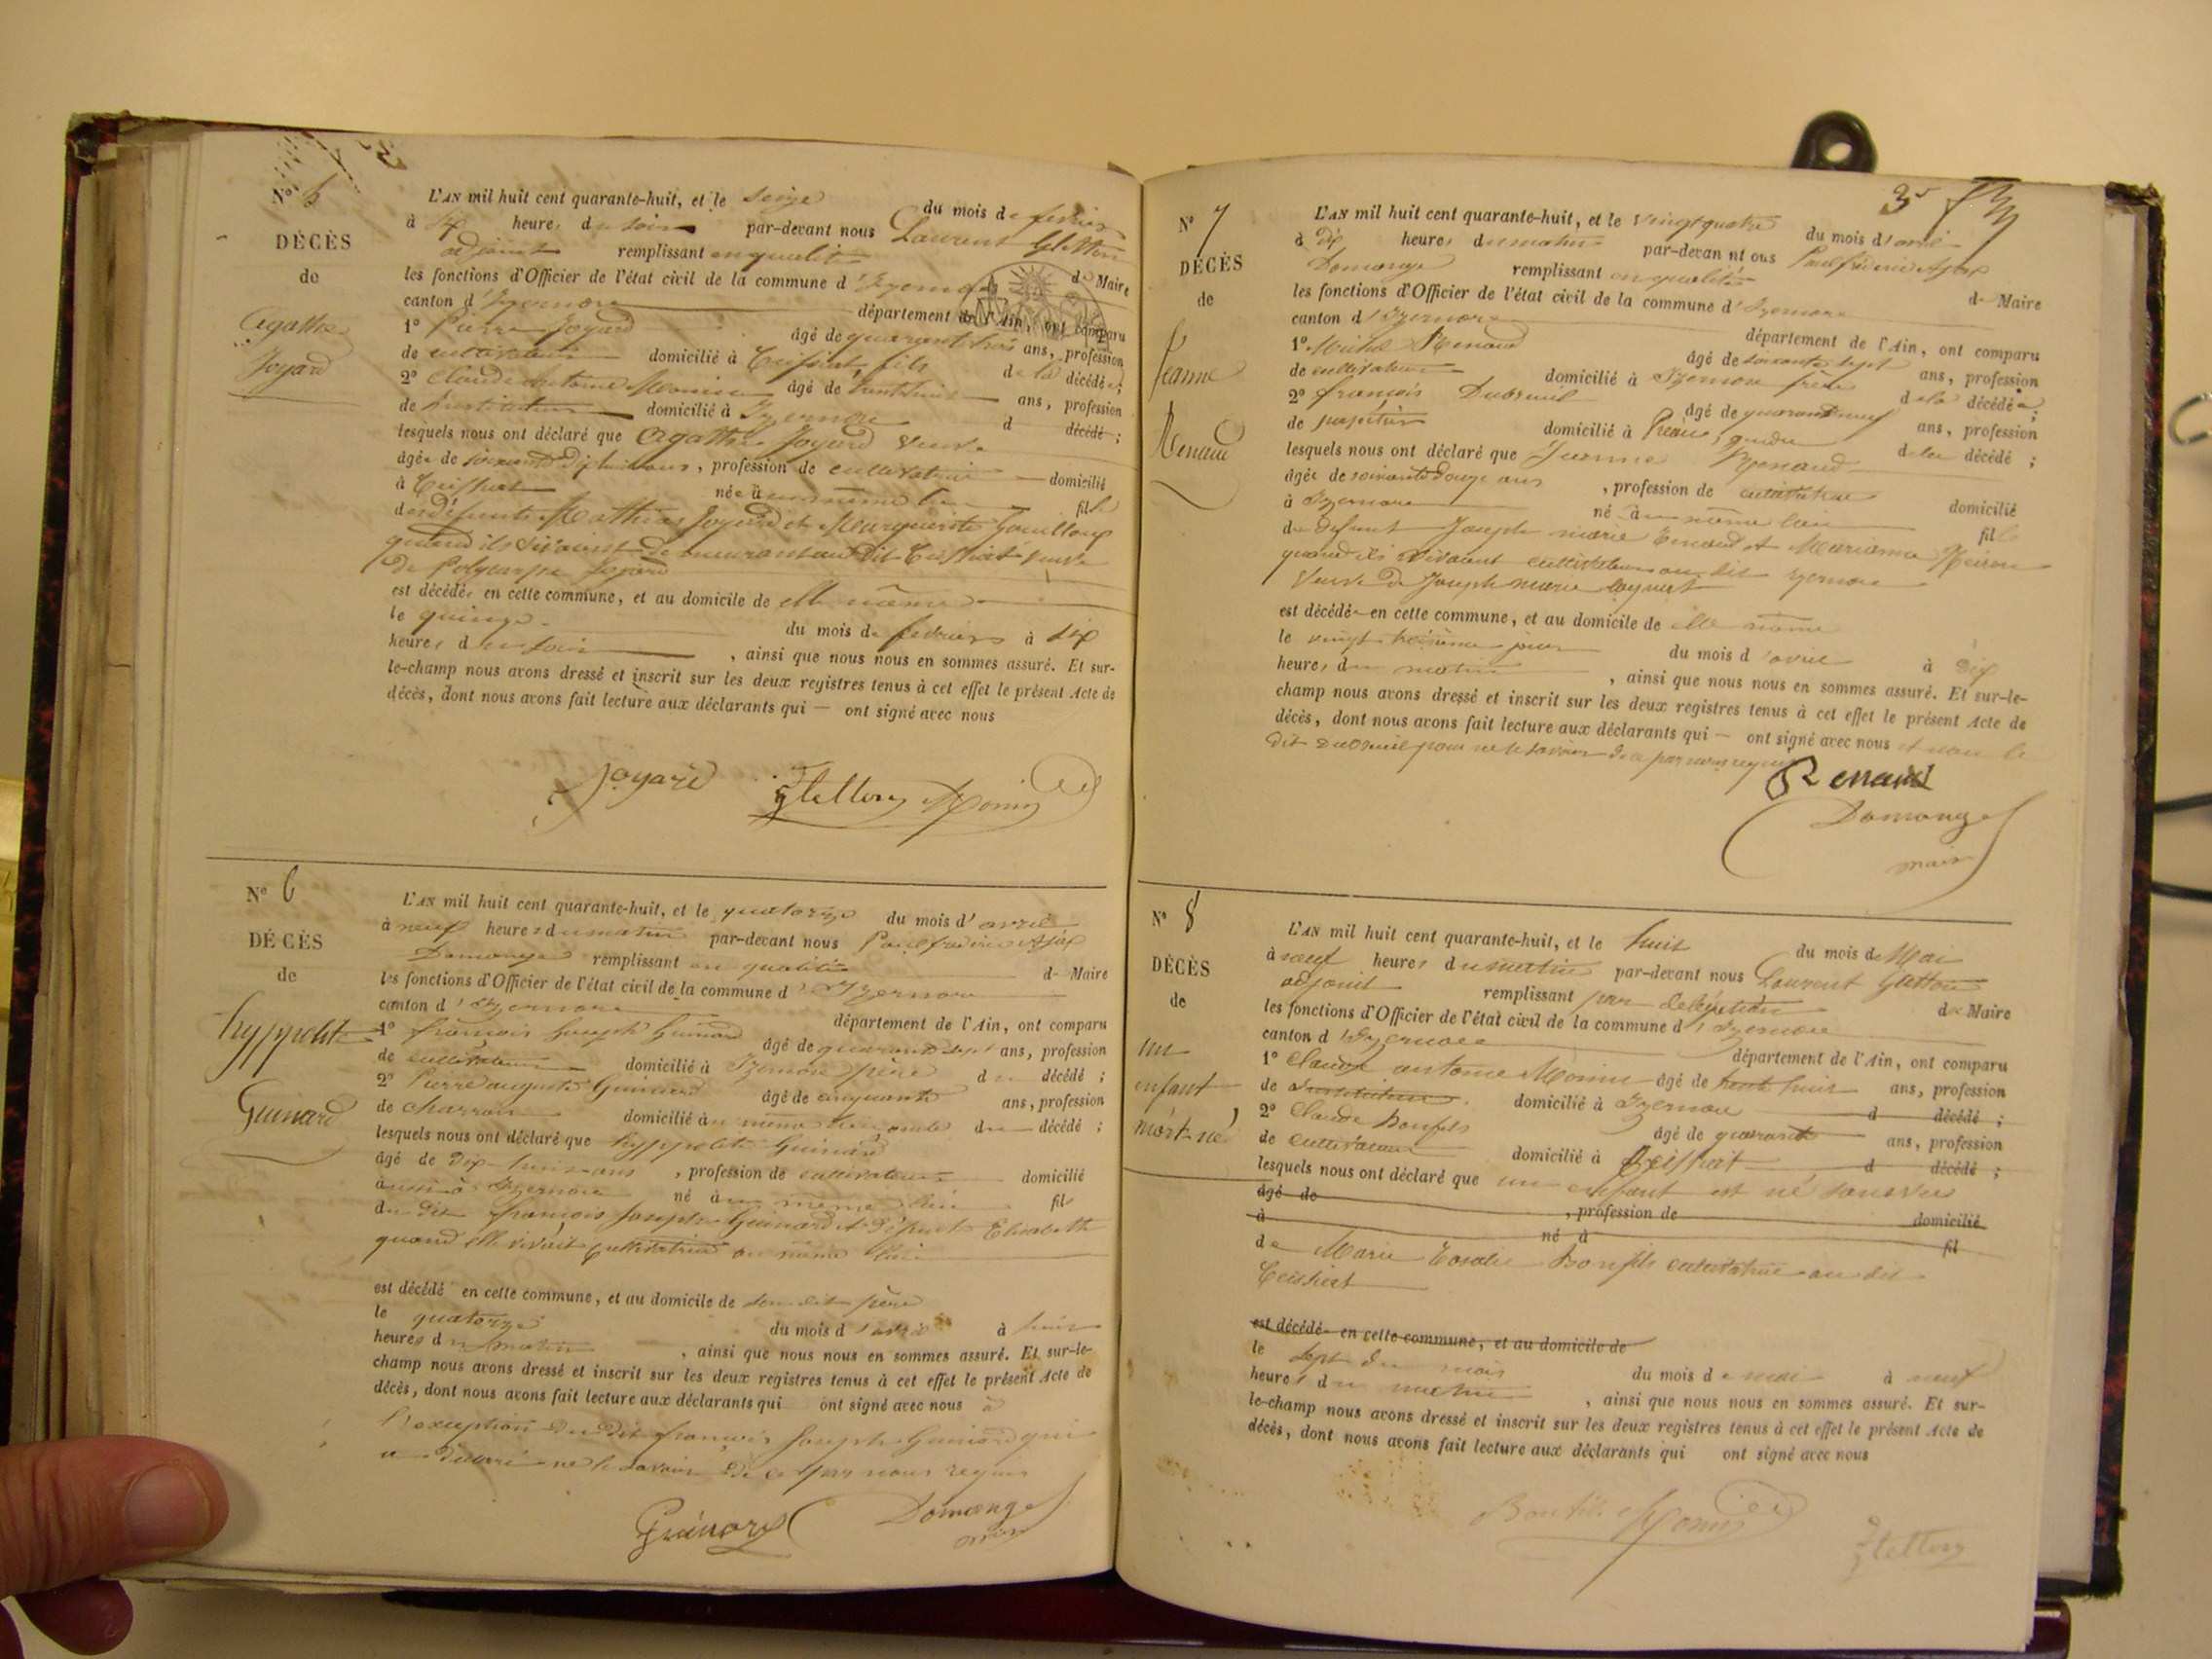 N° 5
DÉCÈS
de
Agathe
Joyard
L'AN mil huit cent quarante-huit, et le seize du mois de février
à six heures du soir par-devant nous Laurent Gletton
adjoint remplissant en qualité de Maire
les fonctions d'Officier de l'état civil de la commune d'Izernore
canton d'Izernore département de l'Ain, ont comparu
1° Pierre Joyard âgé de quarante trois ans, profession
de cultivateur domicilié à Ceissiat, fils de la décédée;
2° Claude Antoine Monin âgé de trente huit ans, profession
de Instituteur domicilié à Izernore d décédé;
lesquels nous ont déclaré que Agathe Joyard veuve
âgée de soixante dix huit ans, profession de cultivatrice domicilié
à Ceissiat née à au même lieu fille
des défunts Mathias Joyard et Marguerite
quand ils vivaient demeurant au dit Ceissiat veuve
de Polycarpe Joyard
est décédée en cette commune, et au domicile de elle même
le quinze du mois de février à six
heures du soir, ainsi que nous nous en sommes assuré. Et sur-
le-champ nous avons dressé et inscrit sur les deux registres tenus à cet effet le présent Acte de
décès, dont nous avons fait lecture aux déclarants qui — ont signé avec nous
Joyard Gletton Monin
N° 6
DÉCÈS
de
hyppolite
Guinard
L'AN mil huit cent quarante-huit, et le quatorze du mois d'avril
à neuf heures du matin par-devant nous Paul frédéric Ajax
Domange remplissant en qualité de Maire
les fonctions d'Officier de l'état civil de la commune d'Izernore
canton d'Izernore département de l'Ain, ont comparu
1° françois Joseph Guinard âgé de quarante sept ans, profession
de cultivateur domicilié à Izernore père du décédé;
2° Pierre auguste Guinard âgé de cinquante ans, profession
de charron domicilié au même lieu oncle du décédé;
lesquels nous ont déclaré que hyppolite Guinard
âgé de Dix-huit ans, profession de cultivateur domicilié
aussi à Izernore né à au même lieu fils
du dit françois Joseph Guinard et défunte Elisabeth
quand elle vivait cultivatrice au même lieu
est décédé en cette commune, et au domicile de son dit père
le quatorze du mois d'avril à huit
heures du matin, ainsi que nous nous en sommes assuré. Et sur-le-
champ nous avons dressé et inscrit sur les deux registres tenus à cet effet le présent Acte de
décès, dont nous avons fait lecture aux déclarants qui ont signé avec nous à
l'exception du dit françois Joseph Guinard qui
a déclaré ne le savoir de ce par nous requis
Guinard Domange
maire
3
N° 7
DÉCÈS
de
Jeanne
Renaud
L'AN mil huit cent quarante-huit, et le vingt quatre du mois d'avril
à Dix heures du matin par-devant nous Paul frédéric Ajax
Domange remplissant en qualité de Maire
les fonctions d'Officier de l'état civil de la commune d'Izernore
canton d'Izernore département de l'Ain, ont comparu
1° Michel Renaud âgé de soixante sept ans, profession
de cultivateur domicilié à Izernore frère de la décédée;
2° françois Dubreuil âgé de quarante neuf ans, profession
de papetier domicilié à gendre de la décédé;
lesquels nous ont déclaré que Jeanne Renaud
âgée de soixante Douze ans, profession de cultivatrice domicilié
à Izernore né à au même lieu fille
de défunt Joseph marie Renaud et Marianne
quand ils vivaient cultivateurs au dit Izernore
veuve de Joseph marie
est décédée en cette commune, et au domicile de elle même
le vingt troisième jour du mois d'avril à Dix
heures du matin, ainsi que nous nous en sommes assuré. Et sur-le-
champ nous avons dressé et inscrit sur les deux registres tenus à cet effet le présent Acte de
décès, dont nous avons fait lecture aux déclarants qui — ont signé avec nous et non le
dit Dubreuil pour ne le savoir de ce par nous requis
Renaud
Domange
maire
N° 8
DÉCÈS
de
un
enfant
mort-né
L'AN mil huit cent quarante-huit, et le huit du mois de Mai
à neuf heures du matin par-devant nous Laurent Gletton
adjoint remplissant par délégation de Maire
les fonctions d'Officier de l'état civil de la commune d'Izernore
canton d'Izernore département de l'Ain, ont comparu
1° Claude antoine Monin âgé de trente huit ans, profession
de Instituteur domicilié à Izernore d décédé;
2° Claude Bonfils âgé de quarante ans, profession
de cultivateur domicilié à Ceissiat d décédé;
lesquels nous ont déclaré que un enfant est né sans vie
âgé de, profession de domicilié
à né à fil
de Marie Rosalie Bonfils cultivatrice au dit
Ceissiat
est décédé en cette commune, et au domicile de
le sept du mois du mois de mai à neuf
heures du matin, ainsi que nous nous en sommes assuré. Et sur-
le-champ nous avons dressé et inscrit sur les deux registres tenus à cet effet le présent Acte de
décès, dont nous avons fait lecture aux déclarants qui ont signé avec nous
Bonfils Monin Gletton